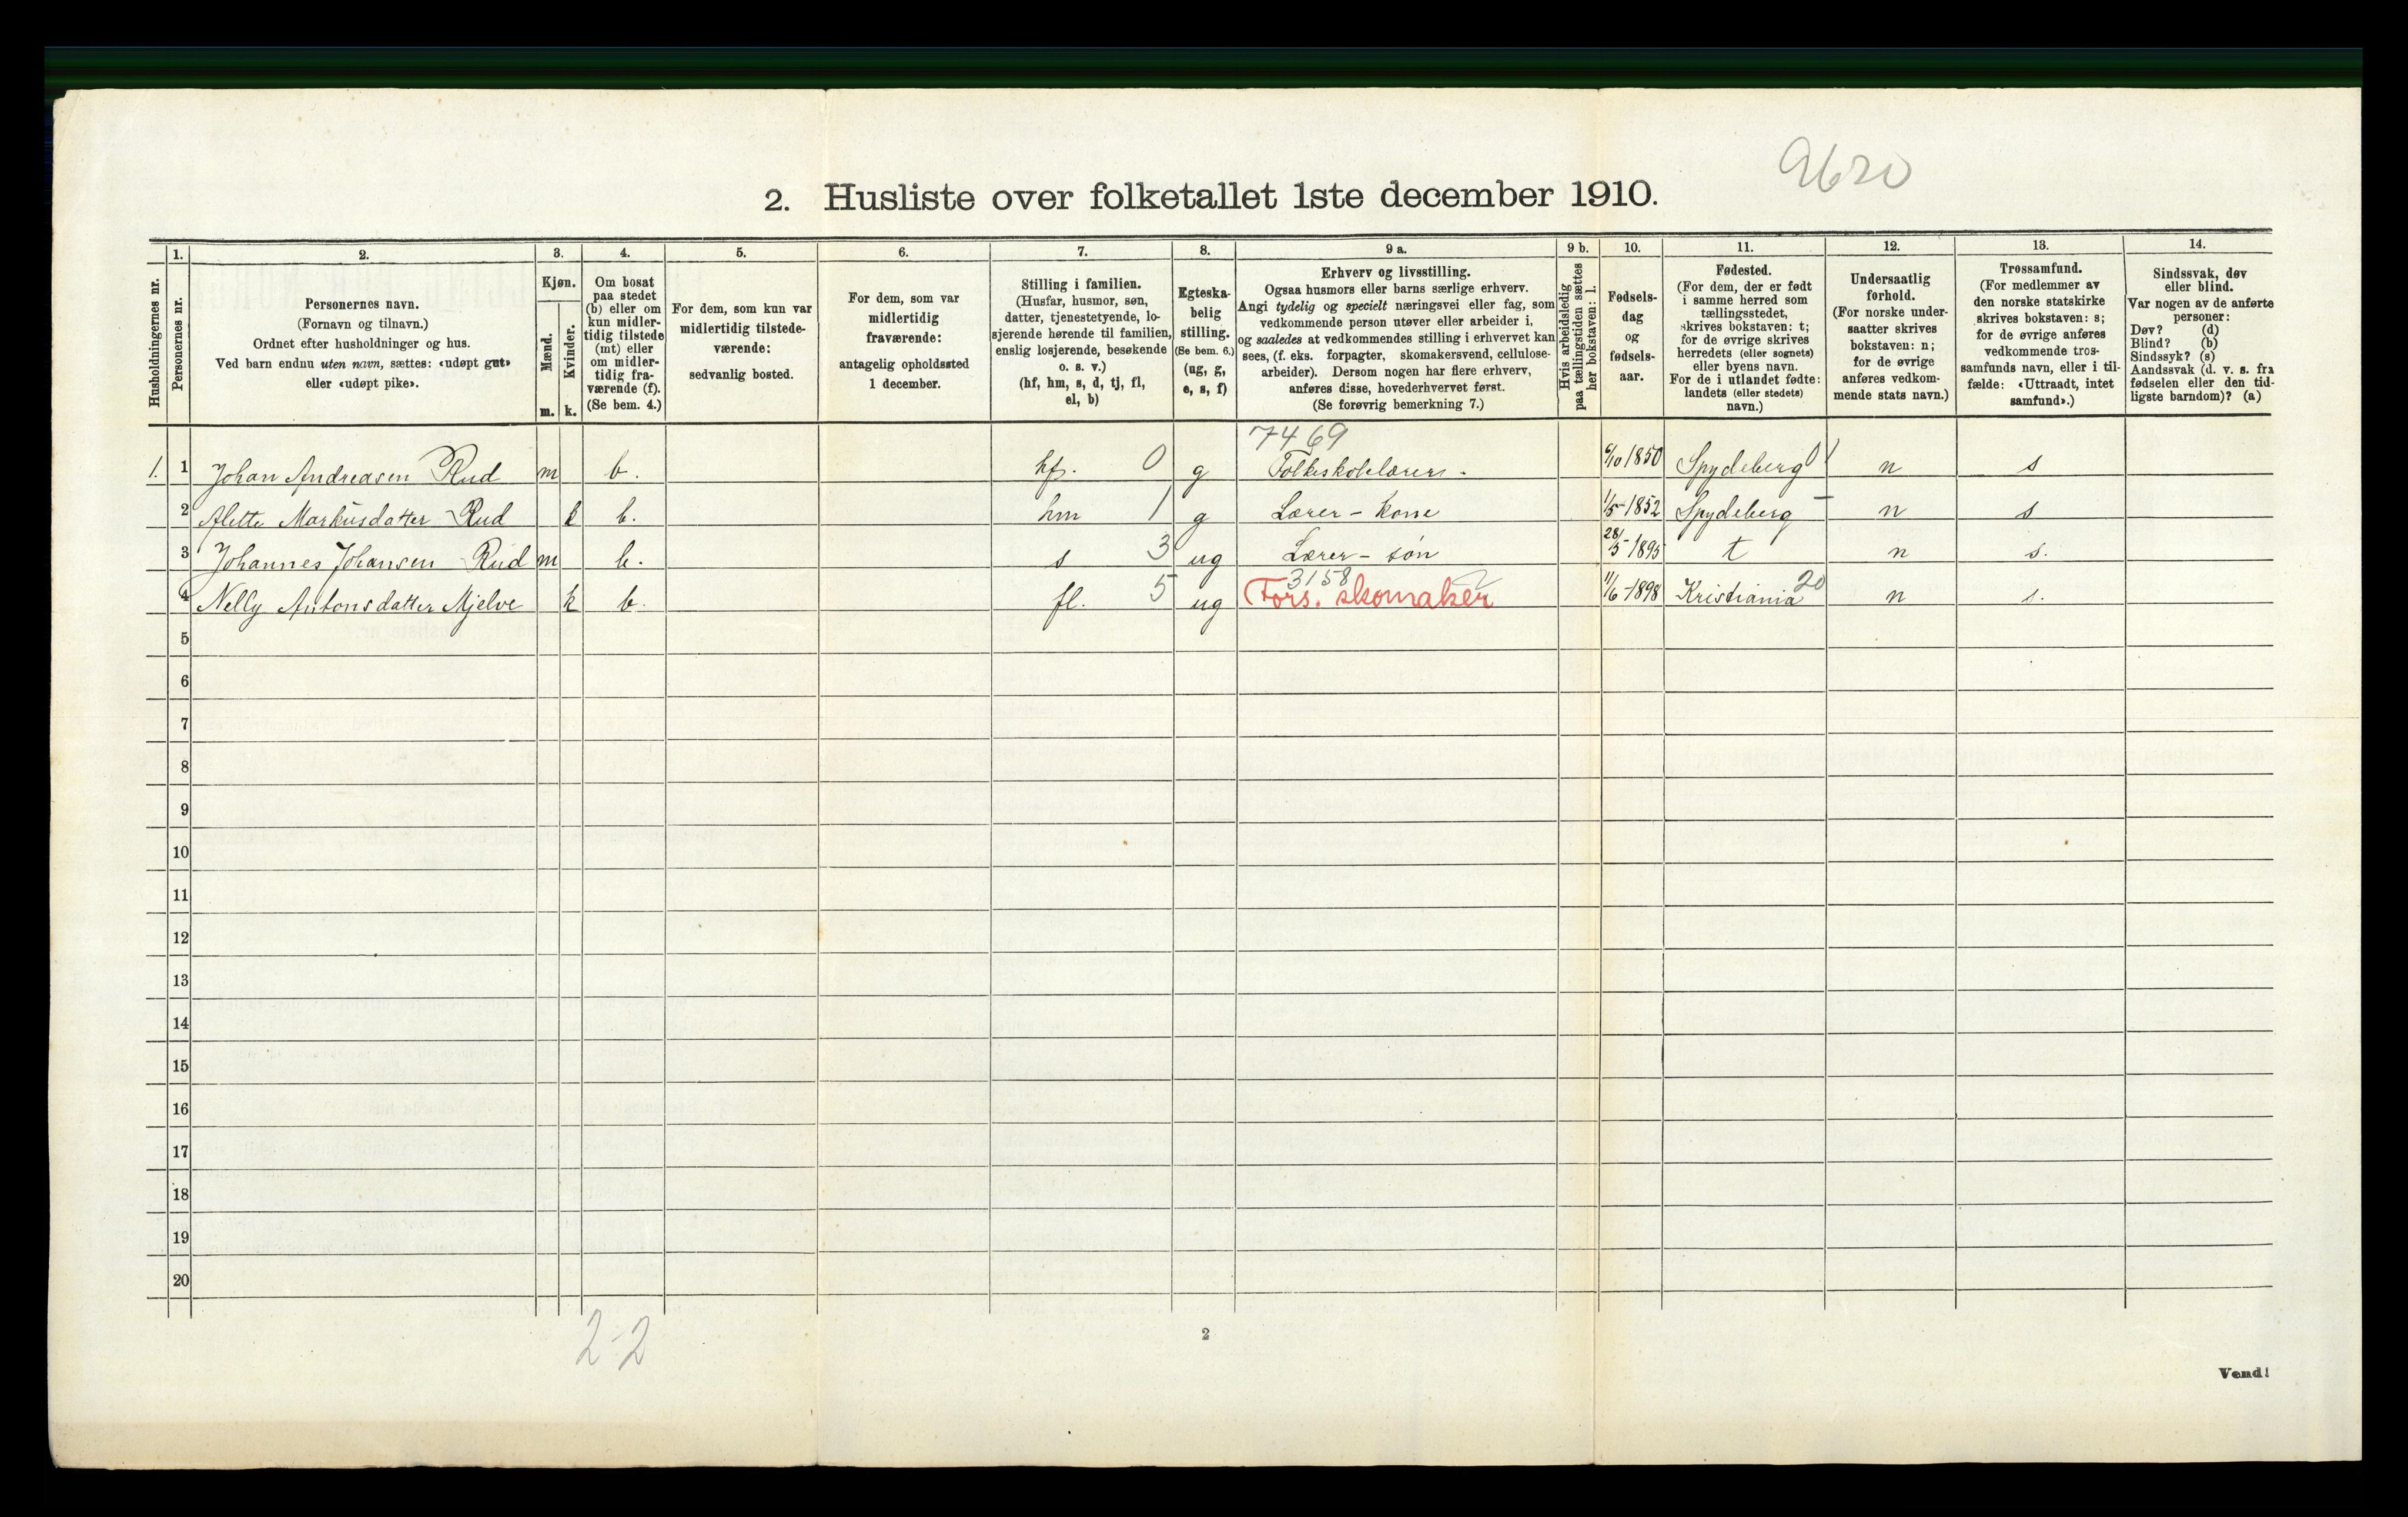 9620
2. Husliste over folketallet 1ste december 1910.
Husholdningernes nr.
1.
Personernes nr.
2.
Personernes navn.
(Fornavn og tilnavn.)
Ordnet efter husholdninger og hus.
Ved barn endnu uten navn, sættes: «udøpt gut»
eller «udøpt pike».
3.
Kjøn.
Mænd.
Kvinder.
m. k.
4.
Om bosat
paa stedet
(b) eller om
kun midler-
tidig tilstede
(mt) eller
om midler-
tidig fra-
værende (f).
(Se bem. 4.)
5.
For dem, som kun var
midlertidig tilstede-
værende:
sedvanlig bosted.
6.
For dem, som var
midlertidig
fraværende:
antagelig opholdssted
1 december.
7.
Stilling i familien.
(Husfar, husmor, søn,
datter, tjenestetyende, lo-
sjerende hørende til familien,
enslig losjerende, besøkende
o. s. v.)
(hf, hm, s, d, tj, fl,
el, b)
8.
Egteska-
belig
stilling.
(Se bem. 6.)
(ug, g,
e, s, f)
9 a.
Erhverv og livsstilling.
Ogsaa husmors eller barns særlige erhverv.
Angi tydelig og specielt næringsvei eller fag, som
vedkommende person utøver eller arbeider i,
og saaledes at vedkommendes stilling i erhvervet kan
sees, (f. eks. forpagter, skomakersvend, cellulose-
arbeider). Dersom nogen har flere erhverv,
anføres disse, hovederhvervet først.
(Se forøvrig bemerkning 7.)
9 b.
Hvis arbeidsledig
paa tællingstiden sættes
her bokstaven: l.
10.
Fødsels-
dag
og
fødsels-
aar.
11.
Fødested.
(For dem, der er født
i samme herred som
tællingsstedet,
skrives bokstaven: t;
for de øvrige skrives
herredets (eller sognets)
eller byens navn.
For de i utlandet fødte:
landets (eller stedets)
navn.)
12.
Undersaatlig
forhold.
(For norske under-
saatter skrives
bokstaven: n;
for de øvrige
anføres vedkom-
mende stats navn.)
13.
Trossamfund.
(For medlemmer av
den norske statskirke
skrives bokstaven: s;
for de øvrige anføres
vedkommende tros-
samfunds navn, eller i til-
fælde: «Uttraadt, intet
samfund».)
14.
Sindssvak, døv
eller blind.
Var nogen av de anførte
personer:
Døv? (d)
Blind? (b)
Sindssyk? (s)
Aandssvak (d. v. s. fra
fødselen eller den tid-
ligste barndom)? (a)
7469
1. 1 Johan Andreasen Rud m b. hf. 0 g Folkeskolelærer. 6/10 1850 Spydeberg 01 n s
2 Alette Markusdatter Rud k b. hm 1 g Lærer - kone 1/5 - 1852 Spydeberg - n s
3 Johannes Johansen Rud m b. s 3 ug Lærer - søn 28/5 - 1895 t n s.
3158
4 Nelly Antonsdatter Mjelve k b. fl. 5 ug Fors. skomaker 11/6 - 1898 Kristiania 20 n s.
5
6
7
8
9
10
11
12
13
14
15
16
17
18
19
20
2-2
2
Vend!